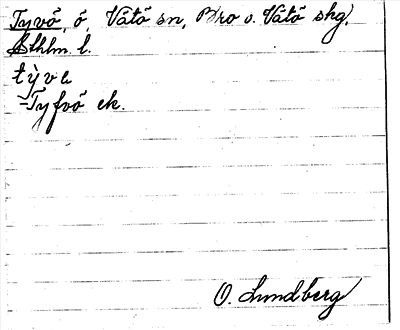 Tyvö, ö, Vätö sn, Bro o. Vätö skg,
Sthlm. l.
tỳvɩ
=Tyfvö ek.
O. Lundberg